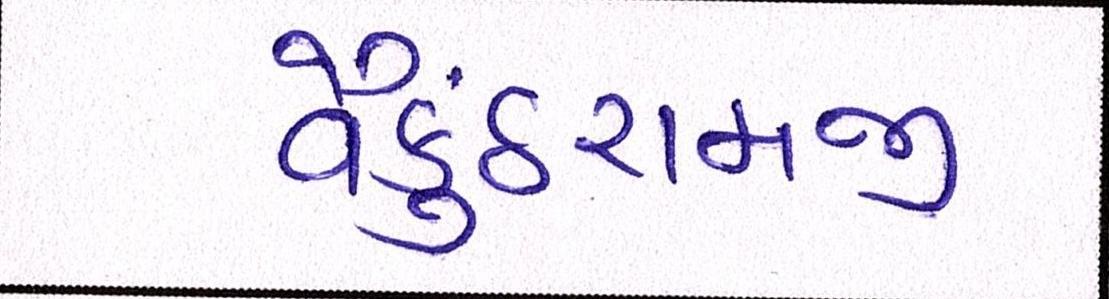 વૈકુંઠરામજી